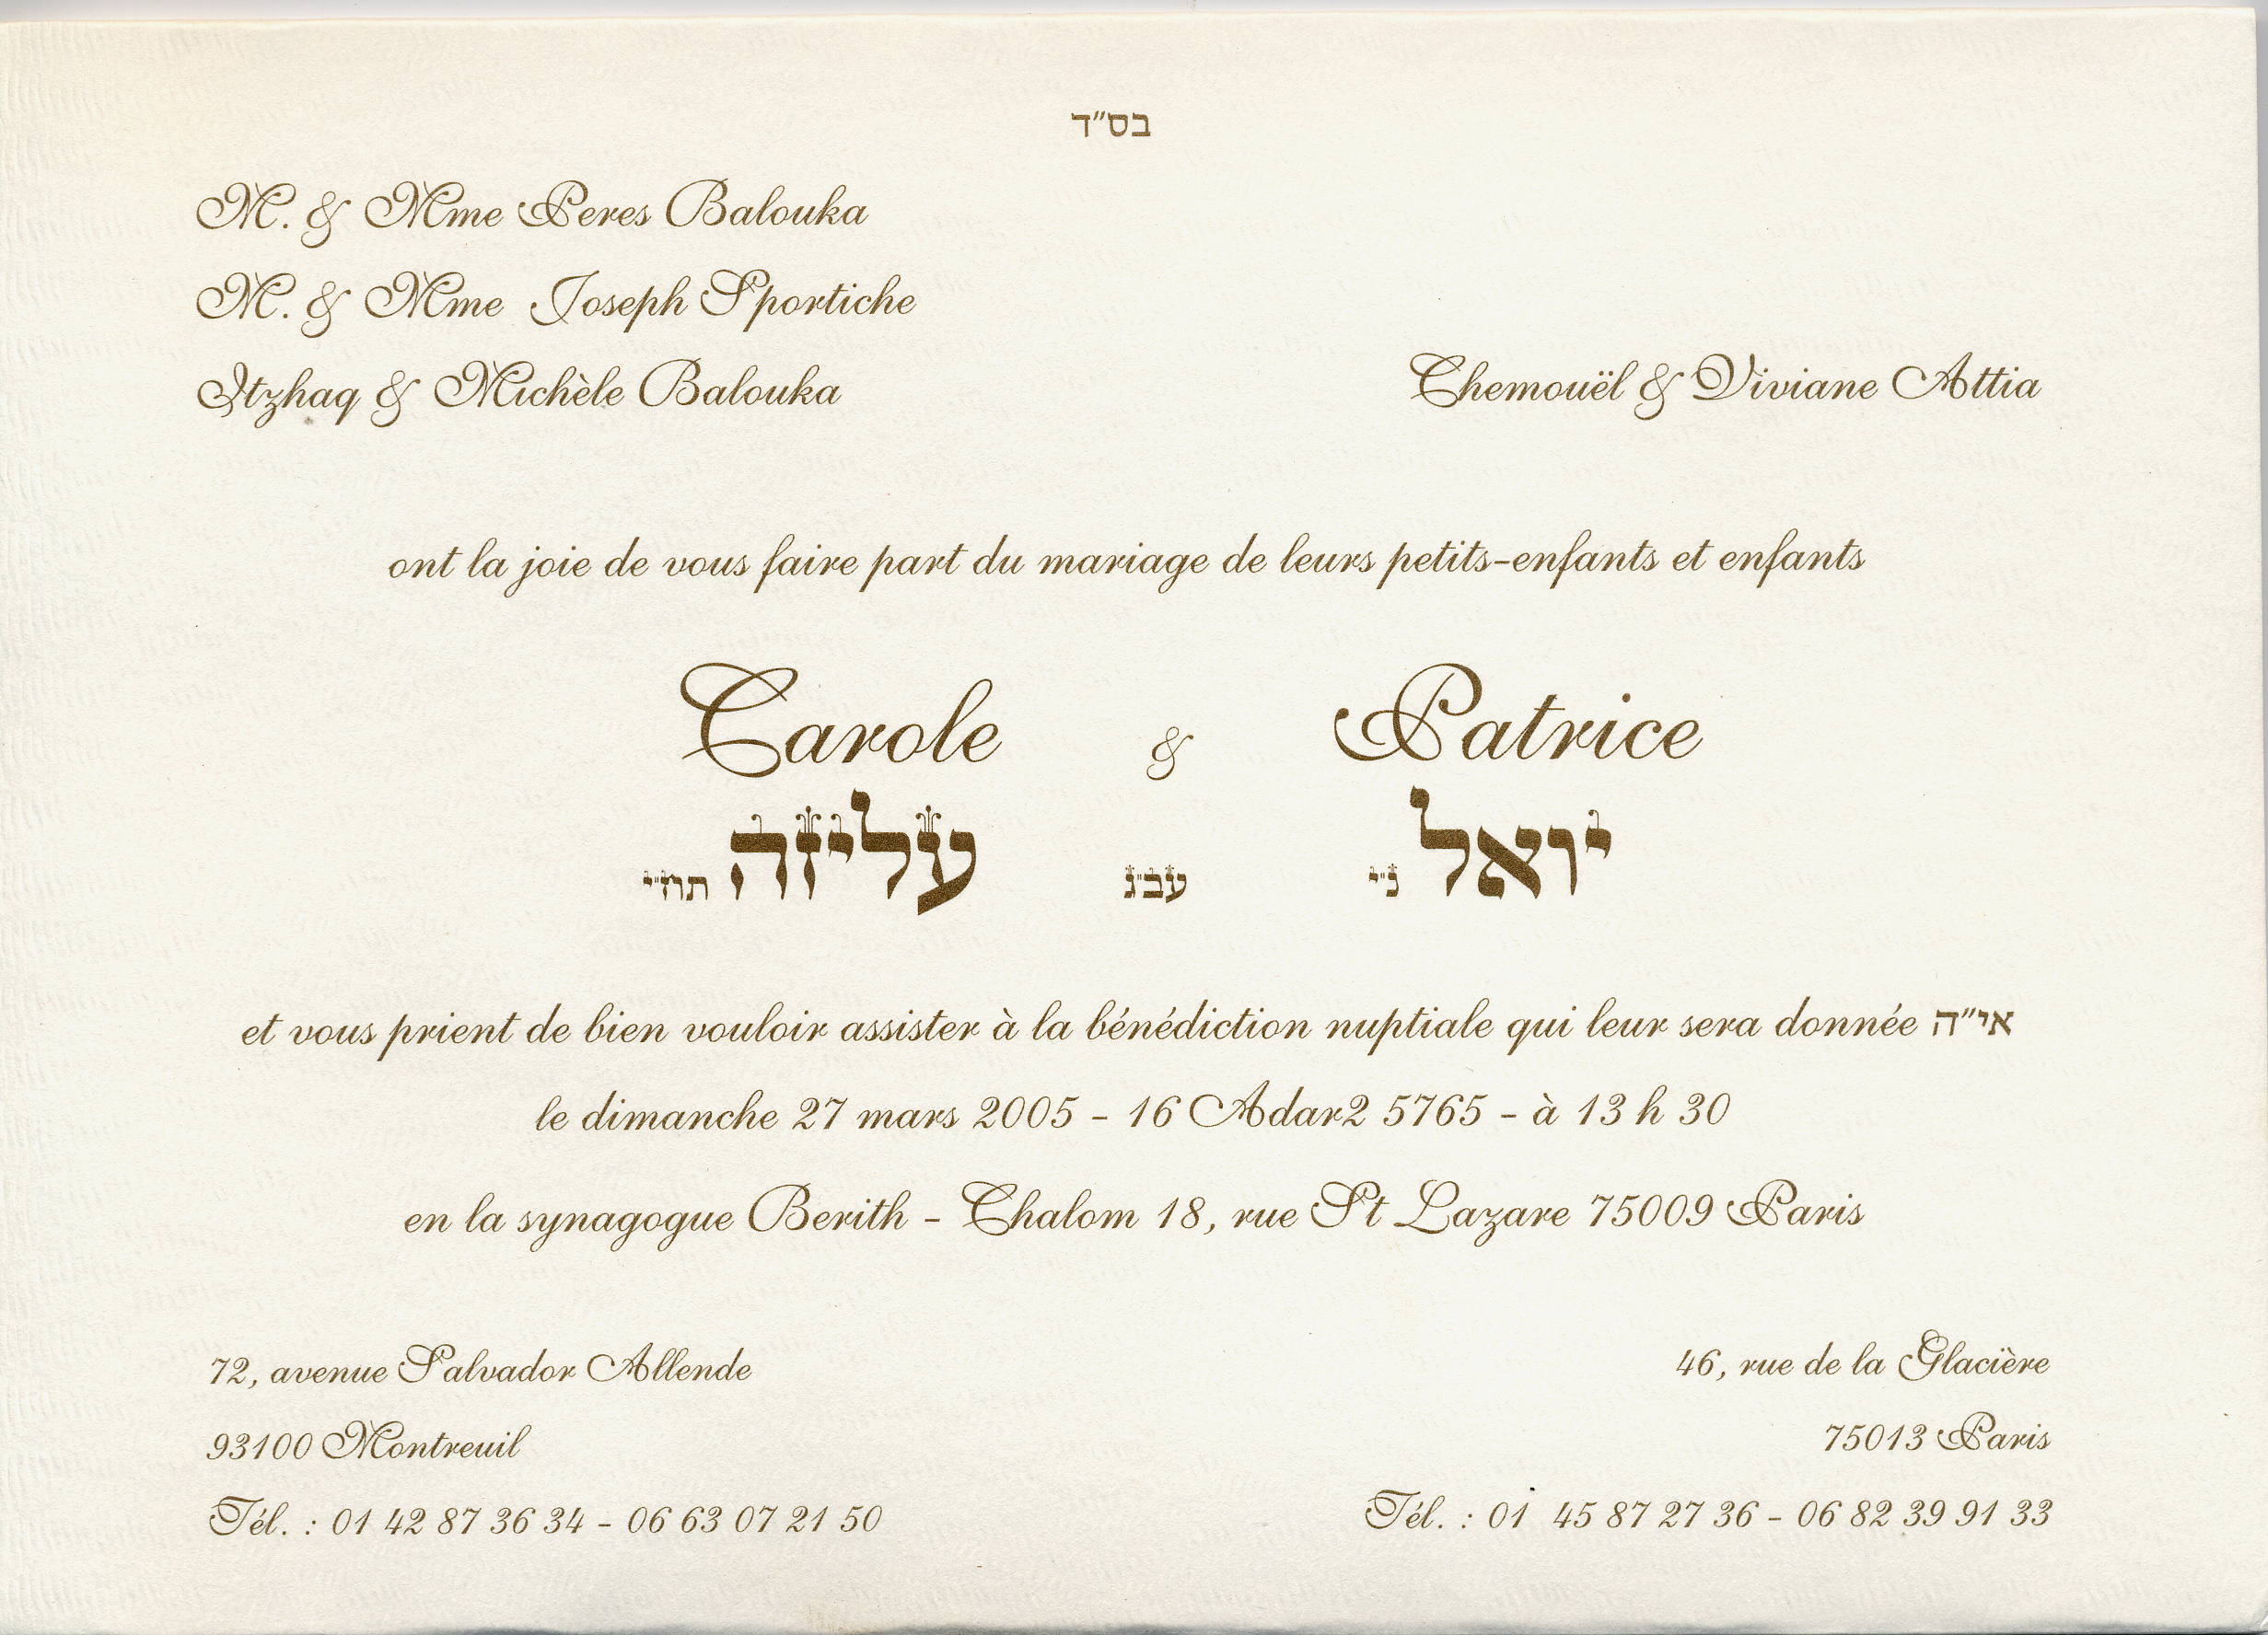 בס"ד
M. & Mme Peres Balouka
M. & Mme Joseph Sportiche
Itzhaq & Michèle Balouka
Chemouël & Viviane Attia
ont la joie de vous faire part du mariage de leurs petits-enfants et enfants
Carole & Patrice
עליזה תח"י עב"ג יואל נ"י
et vous prient de bien vouloir assister à la bénédiction nuptiale qui leur sera donnée אי"ה
le dimanche 27 mars 2005 - 16 Adar2 5765 - à 13 h 30
en la synagogue Berith - Chalom 18, rue St Lazare 75009 Paris
72, avenue Salvador Allende
93100 Montreuil
Tél. : 01 42 87 36 34 - 06 63 07 21 50
46, rue de la Glacière
75013 Paris
Tél. : 01 45 87 27 36 - 06 82 39 91 33